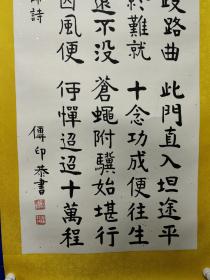 歧路曲 此門直入坦途平
終難就 十念功成便往生
還不没 蒼蠅附驥始堪行
因風便 何憚迢迢十萬程
詩
傳印恭書